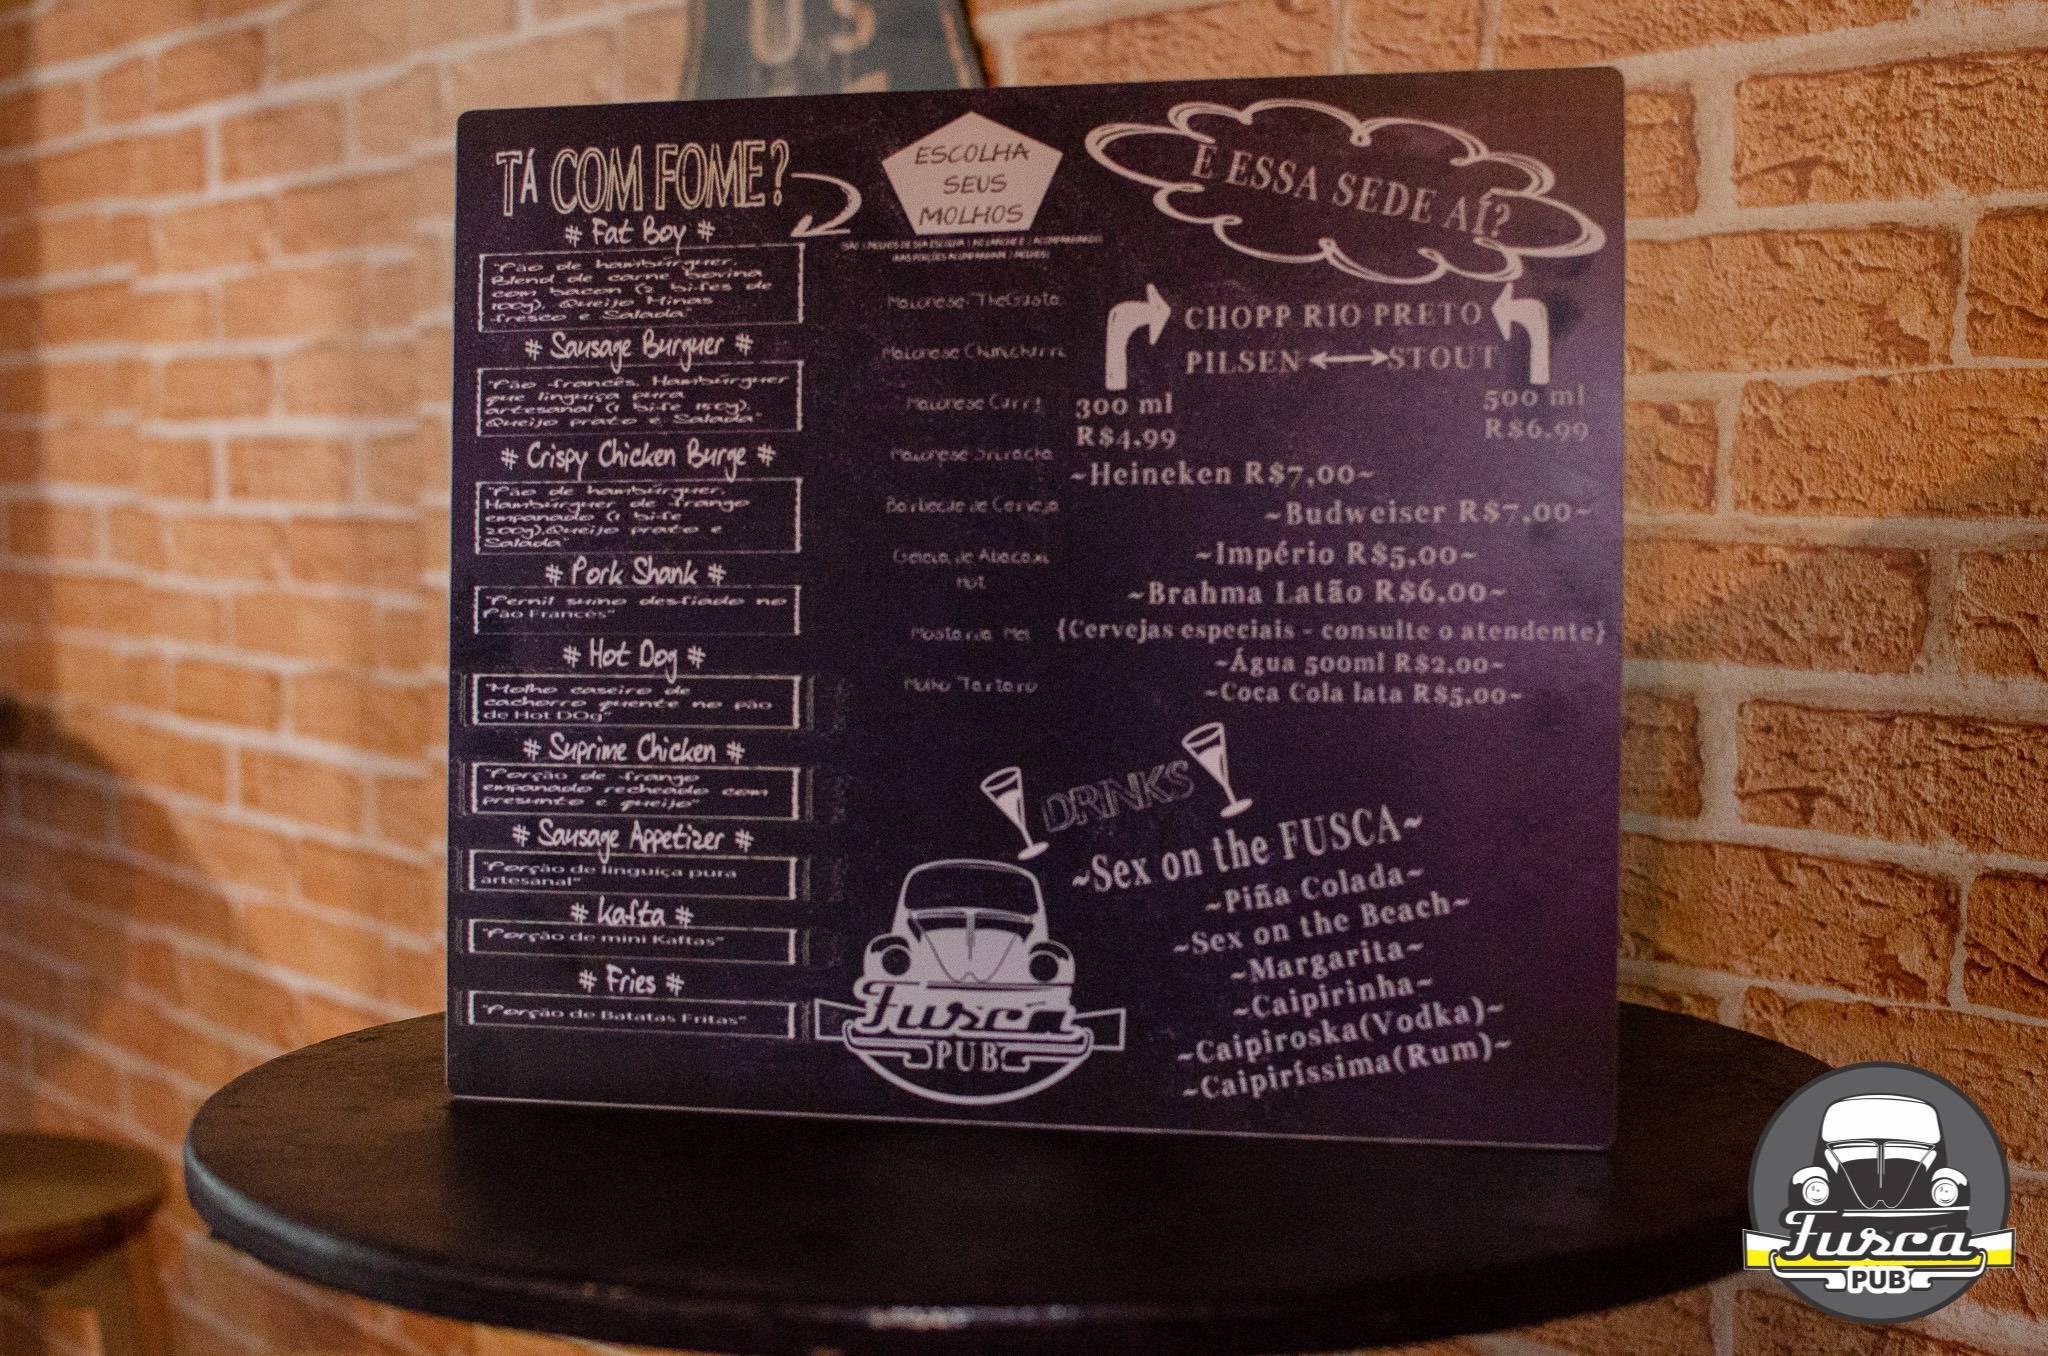 US
TÁ COM FOME?
# Fat Boy #
"Pão de hambúrguer,
Blend de carne bovina
com bacon (2 bifes de
100g), Queijo Minas
fresco e Salada"
# Sausage Burguer #
"Pão francês, Hambúrguer
que linguiça pura
artesanal (1 bife 150g),
Queijo prato e Salada"
# Crispy Chicken Burge #
"Pão de hambúrguer,
Hambúrguer de frango
empanado (1 bife
200g),Queijo prato e
Salada"
# Pork Shank #
"Pernil suino desfiado no
Pão Francês"
# Hot Dog #
"Molho caseiro de
cachorro quente no pão
de Hot DOg"
# Suprime Chicken #
"Porção de frango
empanado recheado com
presunto e queijo"
# Sausage Appetizer #
"Porção de linguiça pura
artesanal"
# Kafta #
"Porção de mini Kaftas"
# Fries #
"Porção de Batatas Fritas"
ESCOLHA
SEUS
MOLHOS
Maionese
Maionese Chimichurri
Maionese Curry
Maionese Sriracha
Barbecue de Cerveja
Geleia de Abacaxi
Hot
Mostarda Mel
Molho Tartaro
E ESSA SEDE AÍ?
CHOPP RIO PRETO
PILSEN STOUT
300 ml 500 ml
R$4.99 R$6.99
~Heineken R$7,00~
~Budweiser R$7,00~
~Império R$5,00~
~Brahma Latão R$6,00~
{Cervejas especiais - consulte o atendente}
~Água 500ml R$2,00~
~Coca Cola lata R$5,00~
DRINKS
~Sex on the FUSCA~
~Piña Colada~
~Sex on the Beach~
~Margarita~
~Caipirinha~
~Caipiroska(Vodka)~
~Caipiríssima(Rum)~
Fusca
PUB
Fusca
PUB